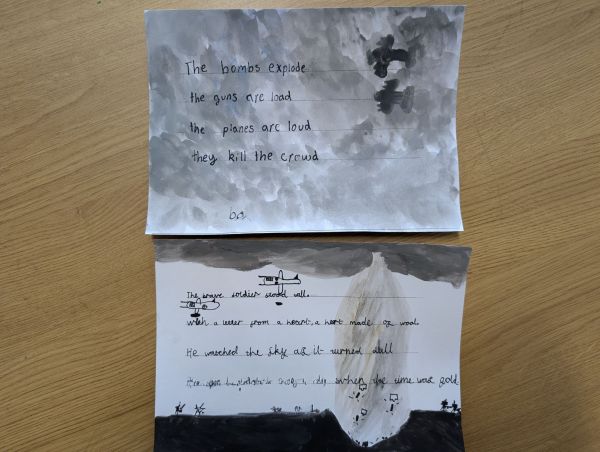 The bombs explode
the guns are load
the planes are loud
they kill the crowd
The brave soldier stood tall.
With a letter from a heart, a hert made of wool.
He watched the sky as it turned dull
when the time was gold